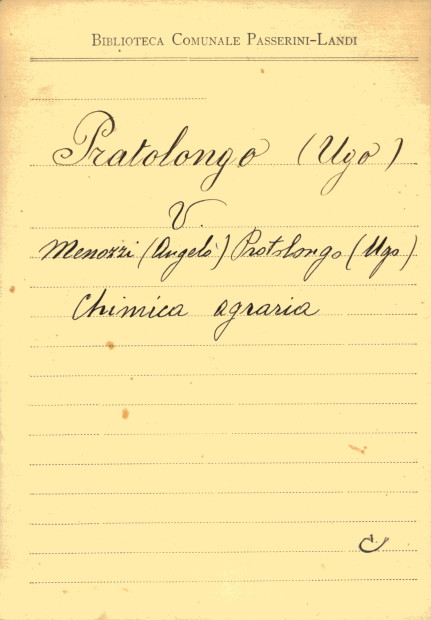 Biblioteca Comunale Passerini-Landi
Pratolongo (Ugo)
V.
Menozzi (Angelo) Pratolongo (Ugo)
Chimica agraria
C